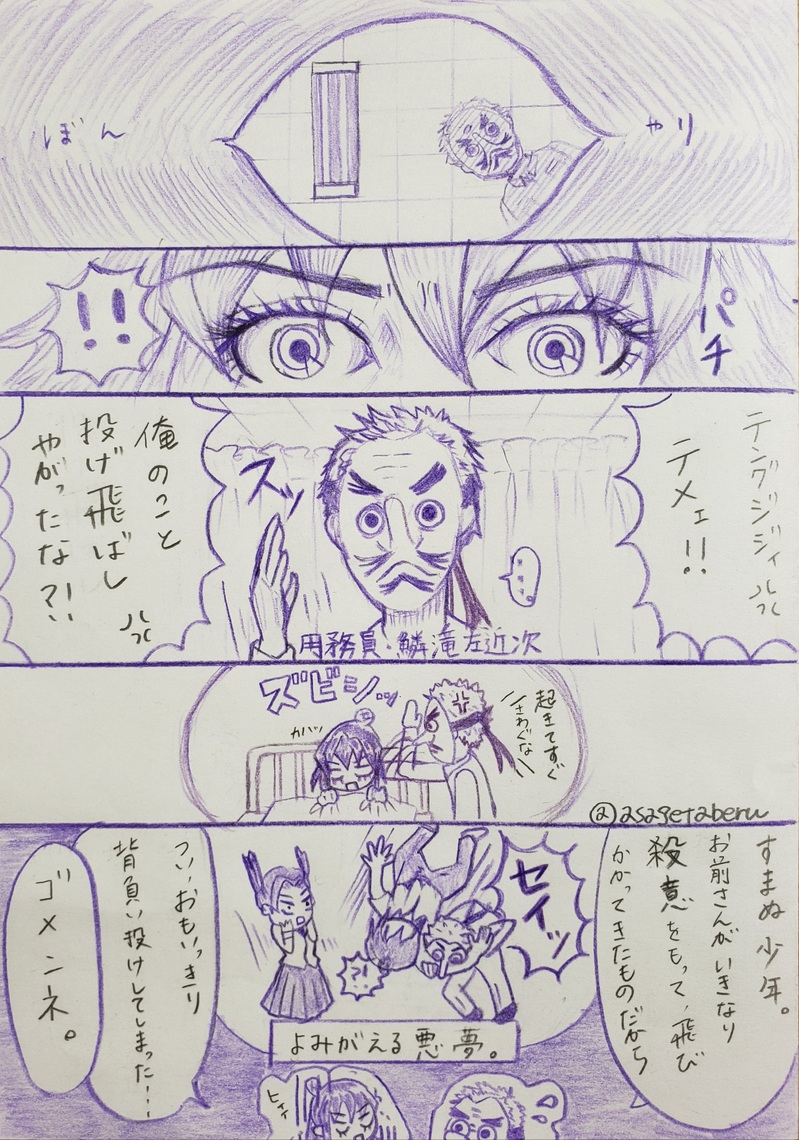 ぼん
やり
パチ
!!
テングジジィ
テメェ!!
俺のこと
投げ飛ばし
やがったな?!
スッ
用務員・鱗滝左近次
ズビシッ
ガバッ
起きてすぐ
さわぐな
@asagetaberu
すまぬ少年。
お前さんがいきなり
殺意をもって、飛び
かかってきたものだから
セイッ
?!
よみがえる悪夢。
つい、おもいっきり
背負い投げしてしまった…
ゴメンネ。